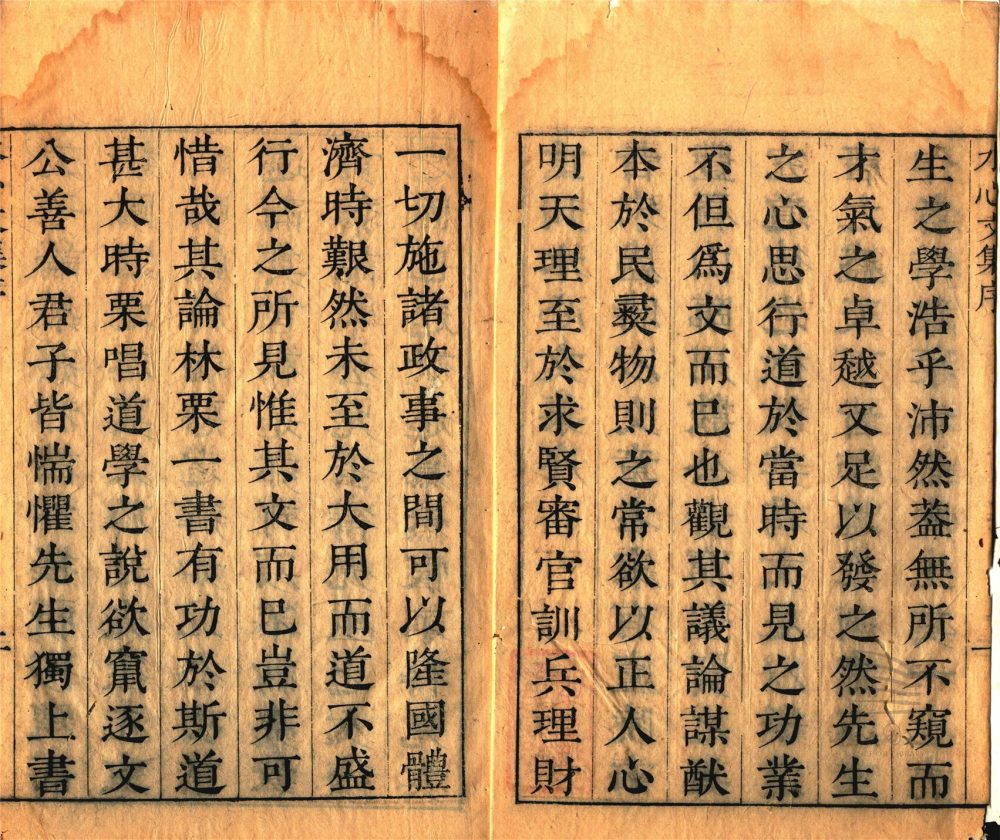 水心文集序
生之學浩乎沛然葢無所不窺而
才氣之卓越又足以發之然先生
之心思行道於當時而見之功業
不但爲文而已也觀其議論謀猷
本於民彛物則之常欲以正人心
明天理至於求賢審官訓兵理財
一切施諸政事之間可以隆國體
濟時艱然未至於大用而道不盛
行今之所見惟其文而已豈非可
惜哉其論林栗一書有功於斯道
甚大時栗唱道學之說欲竄逐文
公善人君子皆惴懼先生獨上書